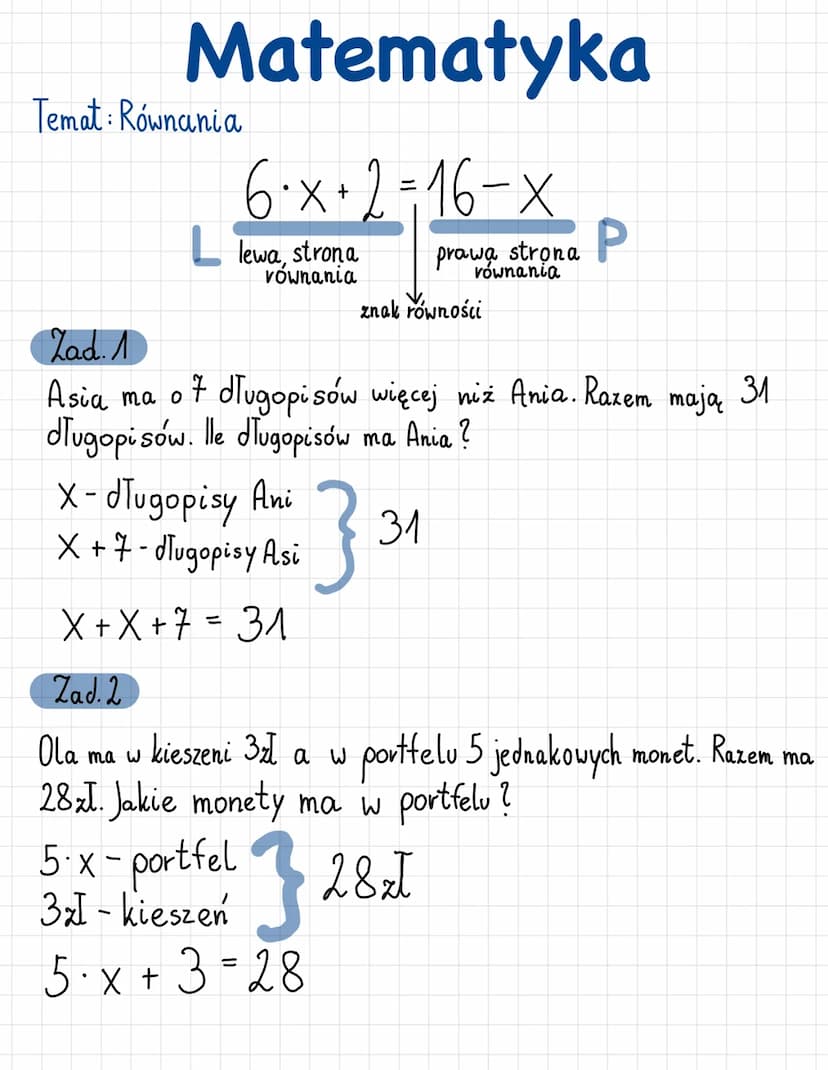 Matematyka
Temat: Równania
6·x+2=16-x
L
lewa strona
równania
prawa strona
równania
P
znak równości
Zad. 1
Asia ma o 7 długopisów więcej niż Ania. Razem mają 31
długopisów. Ile długopisów ma Ania?
X - długopisy Ani
X + 7 - długopisy Asi
} 31
X + X + 7 = 31
Zad. 2
Ola ma w kieszeni 3zł a w portfelu 5 jednakowych monet. Razem ma
28zł. Jakie monety ma w portfelu?
5·x - portfel
3zł - kieszeń
} 28zł
5·x + 3 = 28